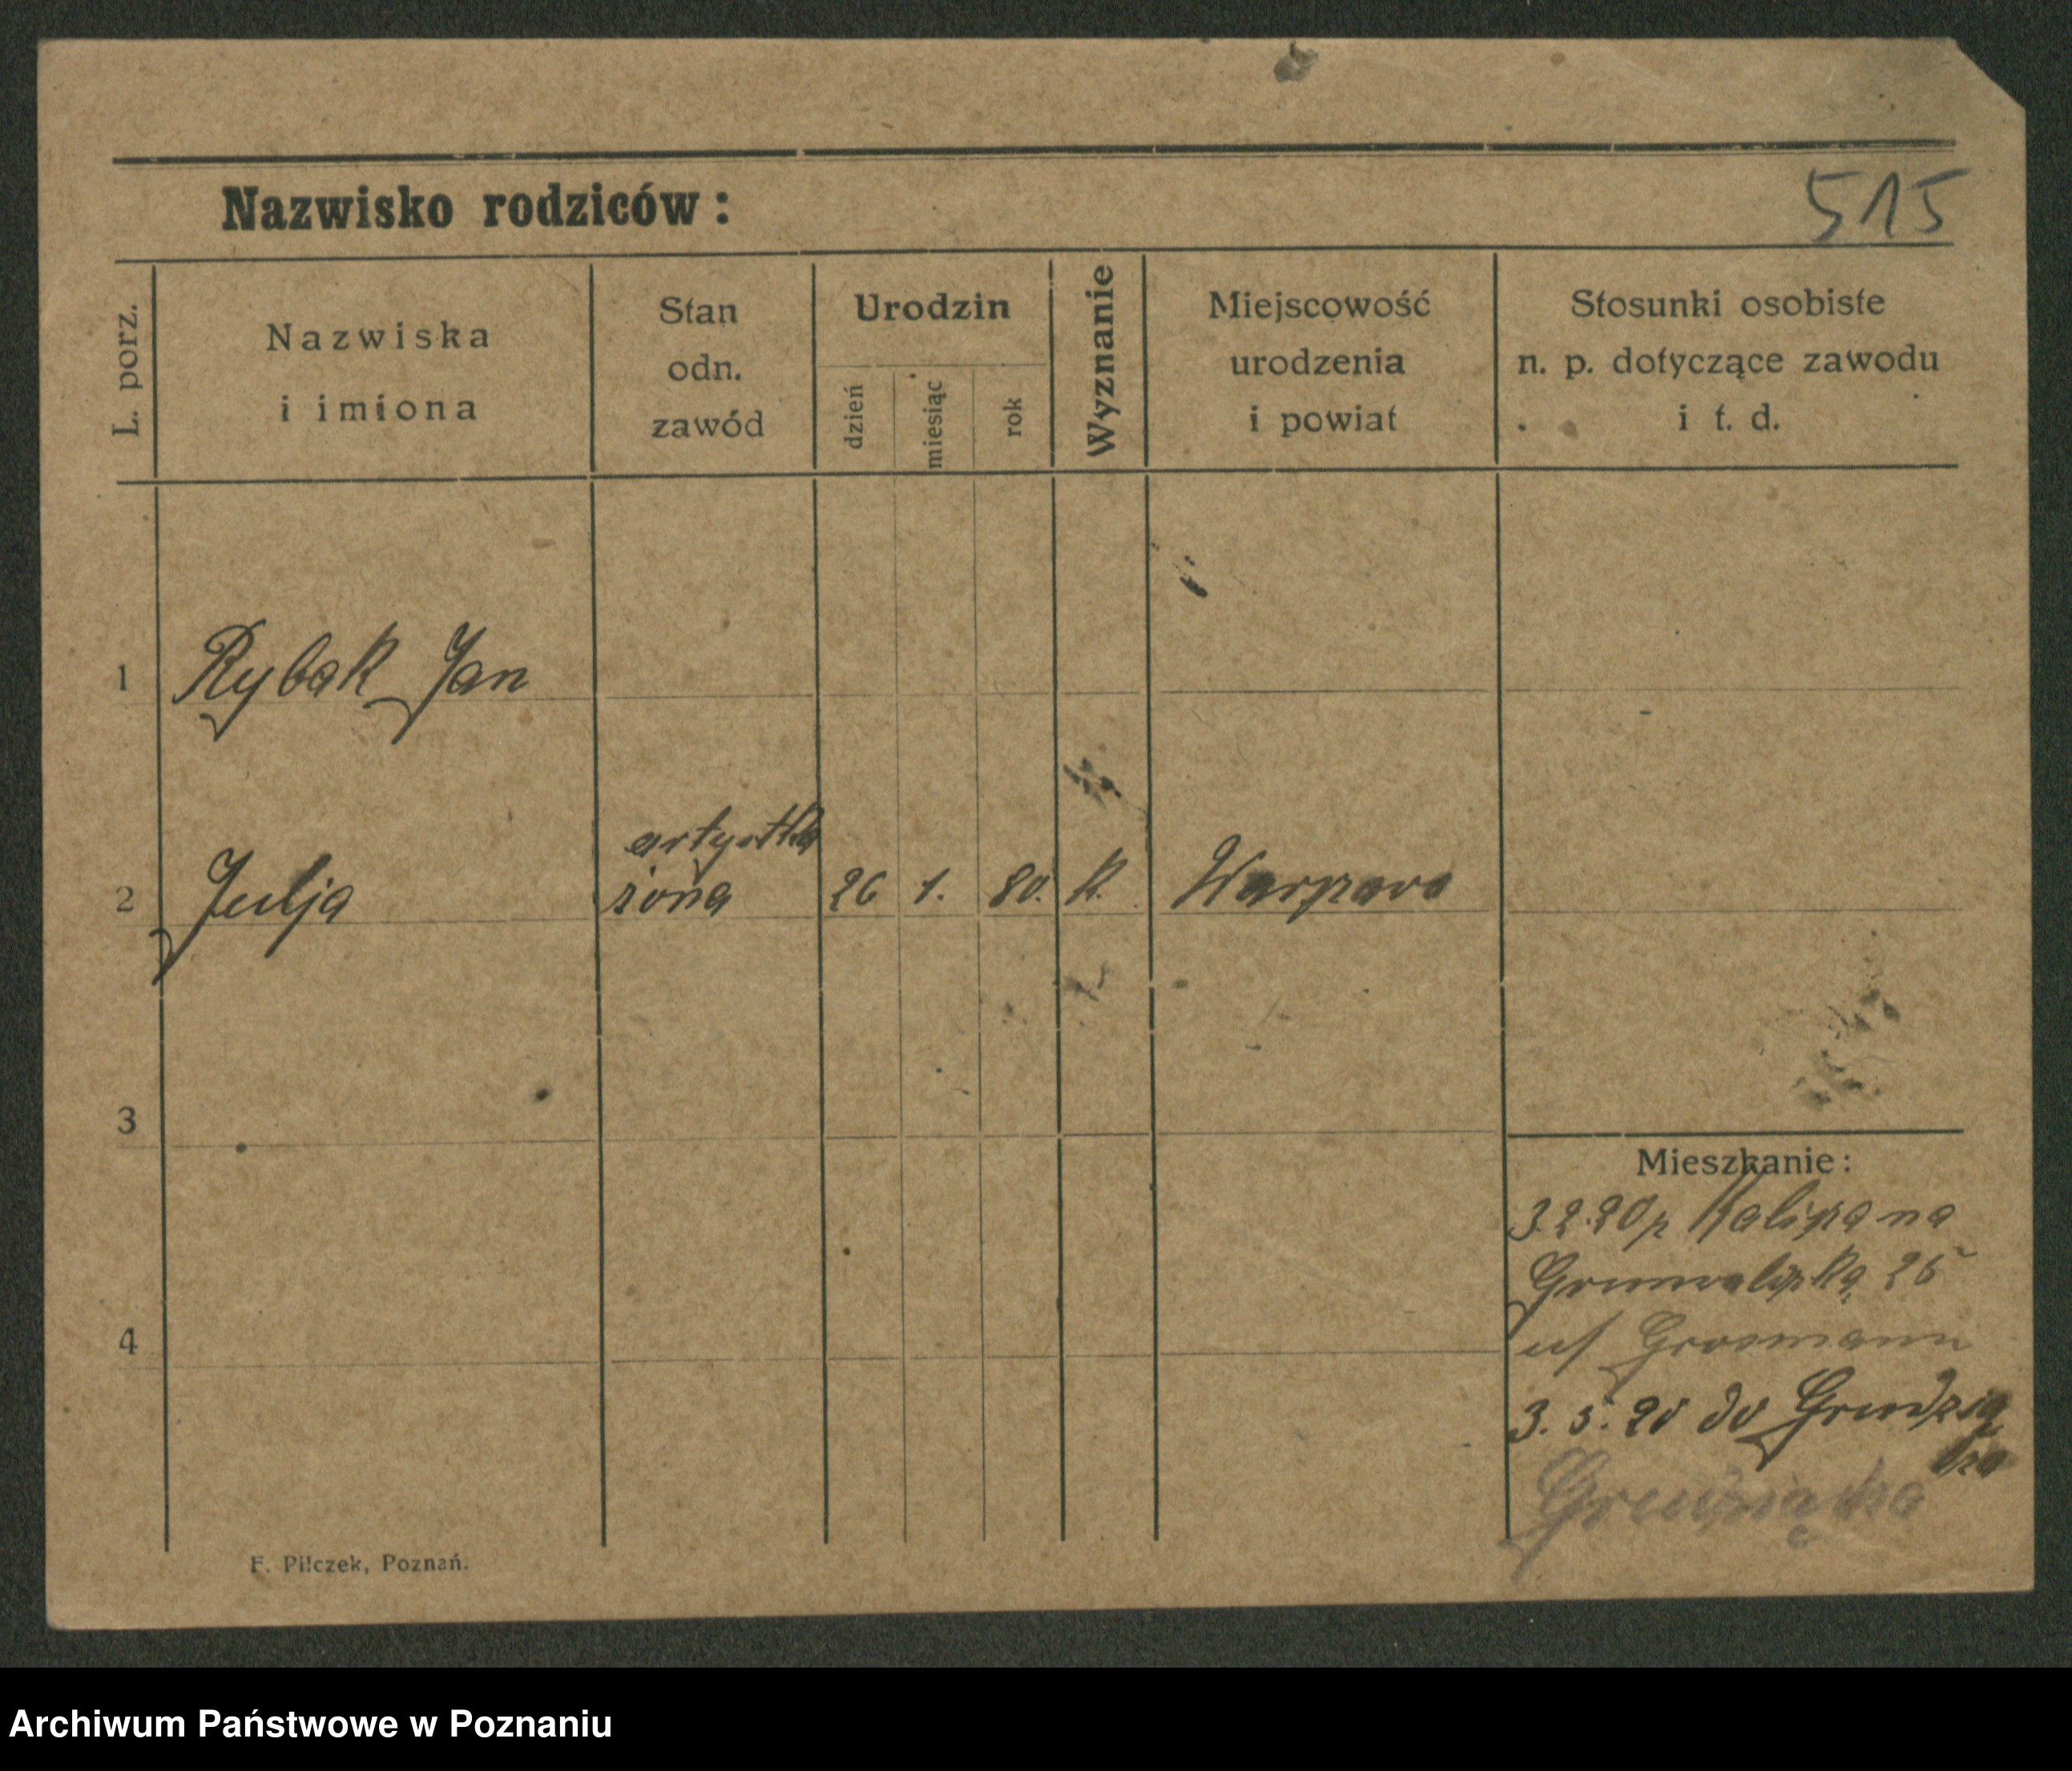 515
Nazwisko rodziców:
L. porz.
Nazwiska
i imiona
Stan
odn.
zawód
Urodzin
dzień
miesiąc
rok
Wyznanie
Miejscowość
urodzenia
i powiat
Stosunki osobiste
n. p. dotyczące zawodu
i t. d.
1 Rybak Jan
artystka
2 Julja żona 26 1. 80. k. Warszawa
3
4
Mieszkanie:
3.2.20 z Kalisza na
Grunwaldzką 25
u/ Grosmann
3. 5. 20 do Grudzią
dza
Grudziądza
F. Pilczek, Poznań.
Archiwum Państwowe w Poznaniu